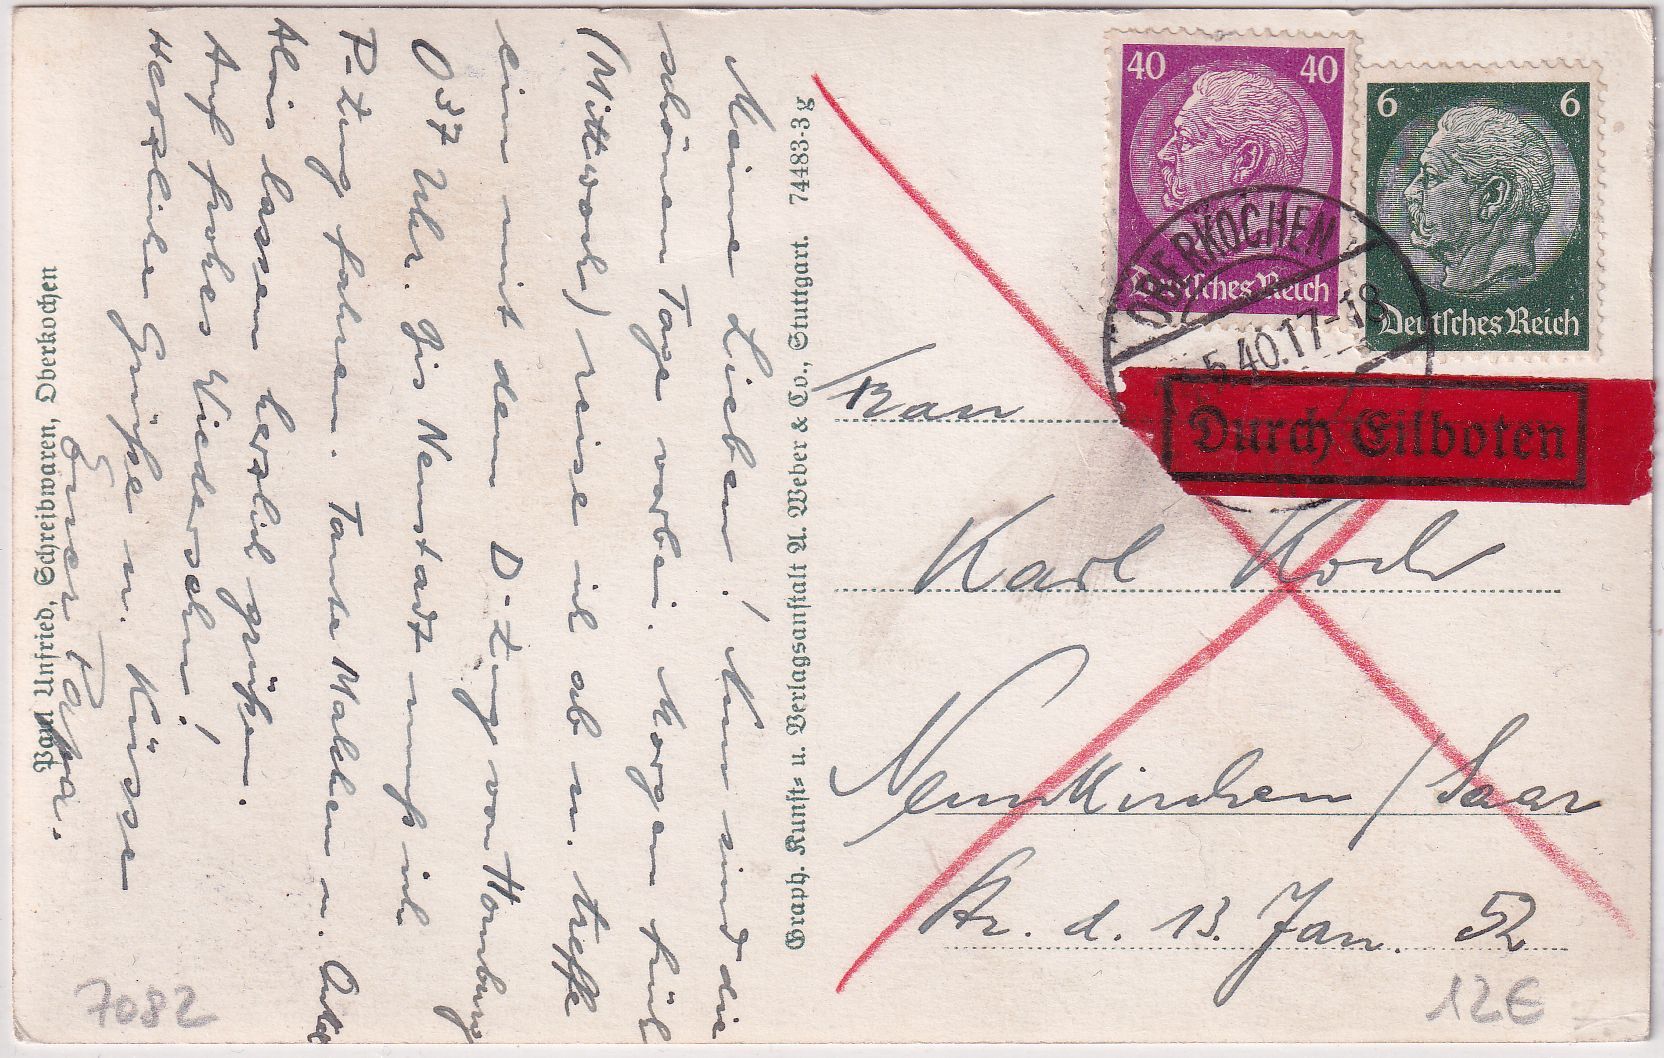 Meine Lieben! Nun sind die
schönen Tage vorbei. Morgen früh
(Mittwoch) reise ich ab u. treffe
ein mit dem D-Zug von Homburg
0³⁷ Uhr. Bis Neustadt muss ich
P-Zug fahren. Tante Malchen u. Onkel
Alois lassen herzlich grüßen.
Auf frohes Wiedersehn!
Herzliche Grüße u. Küsse
Euer Papa.
Paul Unfried, Schreibwaren, Oberkochen
Graph. Kunst- u. Verlagsanstalt A. Weber & Co., Stuttgart. 74483-3g
40 40
Deutsches Reich
6 6
Deutsches Reich
OBERKOCHEN
5.40.17-18
Durch Eilboten
Frau
Karl Koch
Neunkirchen/Saar
Str. d. 13. Jan. 52
7082
12€